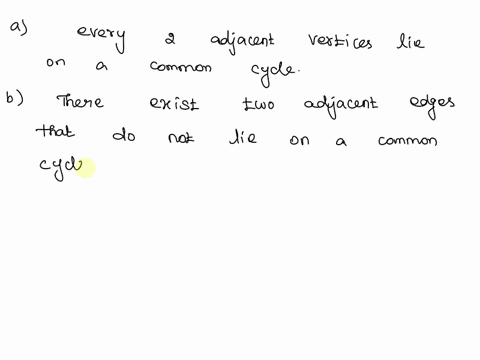 a) every 2 adjacent vertices lie
on a common cycle.
b) There exist two adjacent edges
that do not lie on a common
cycl